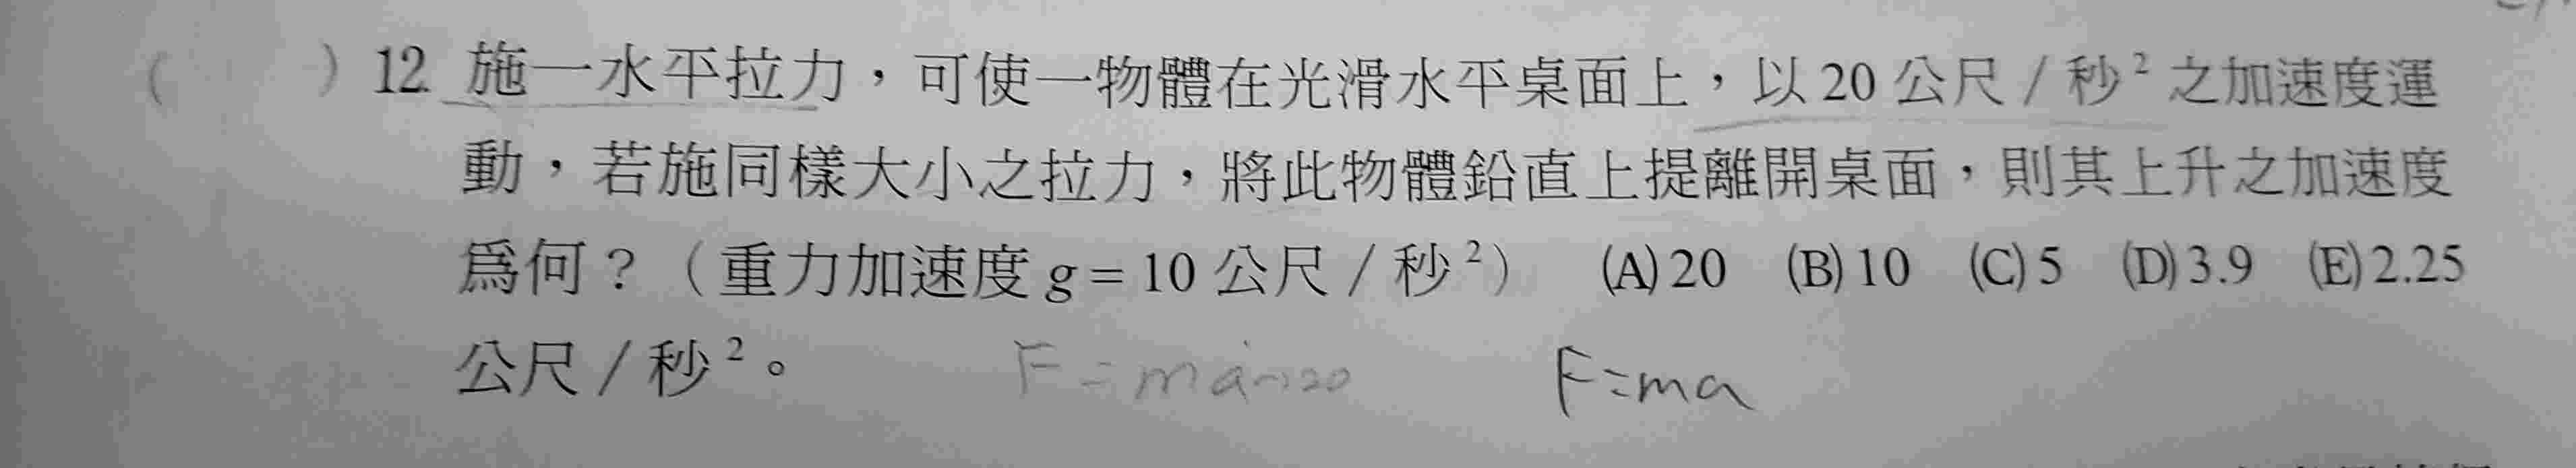 ( ) 12. 施一水平拉力，可使一物體在光滑水平桌面上，以 20 公尺 / 秒² 之加速度運
動，若施同樣大小之拉力，將此物體鉛直上提離開桌面，則其上升之加速度
爲何？（重力加速度 g = 10 公尺 / 秒²） (A) 20 (B) 10 (C) 5 (D) 3.9 (E) 2.25
公尺 / 秒²。
F = ma→20 F=ma